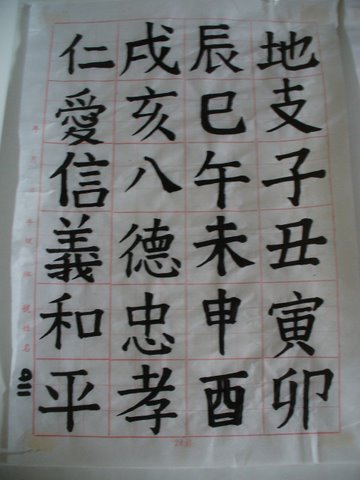 地支子丑寅卯
辰巳午未申酉
戌亥八德忠孝
仁愛信義和平